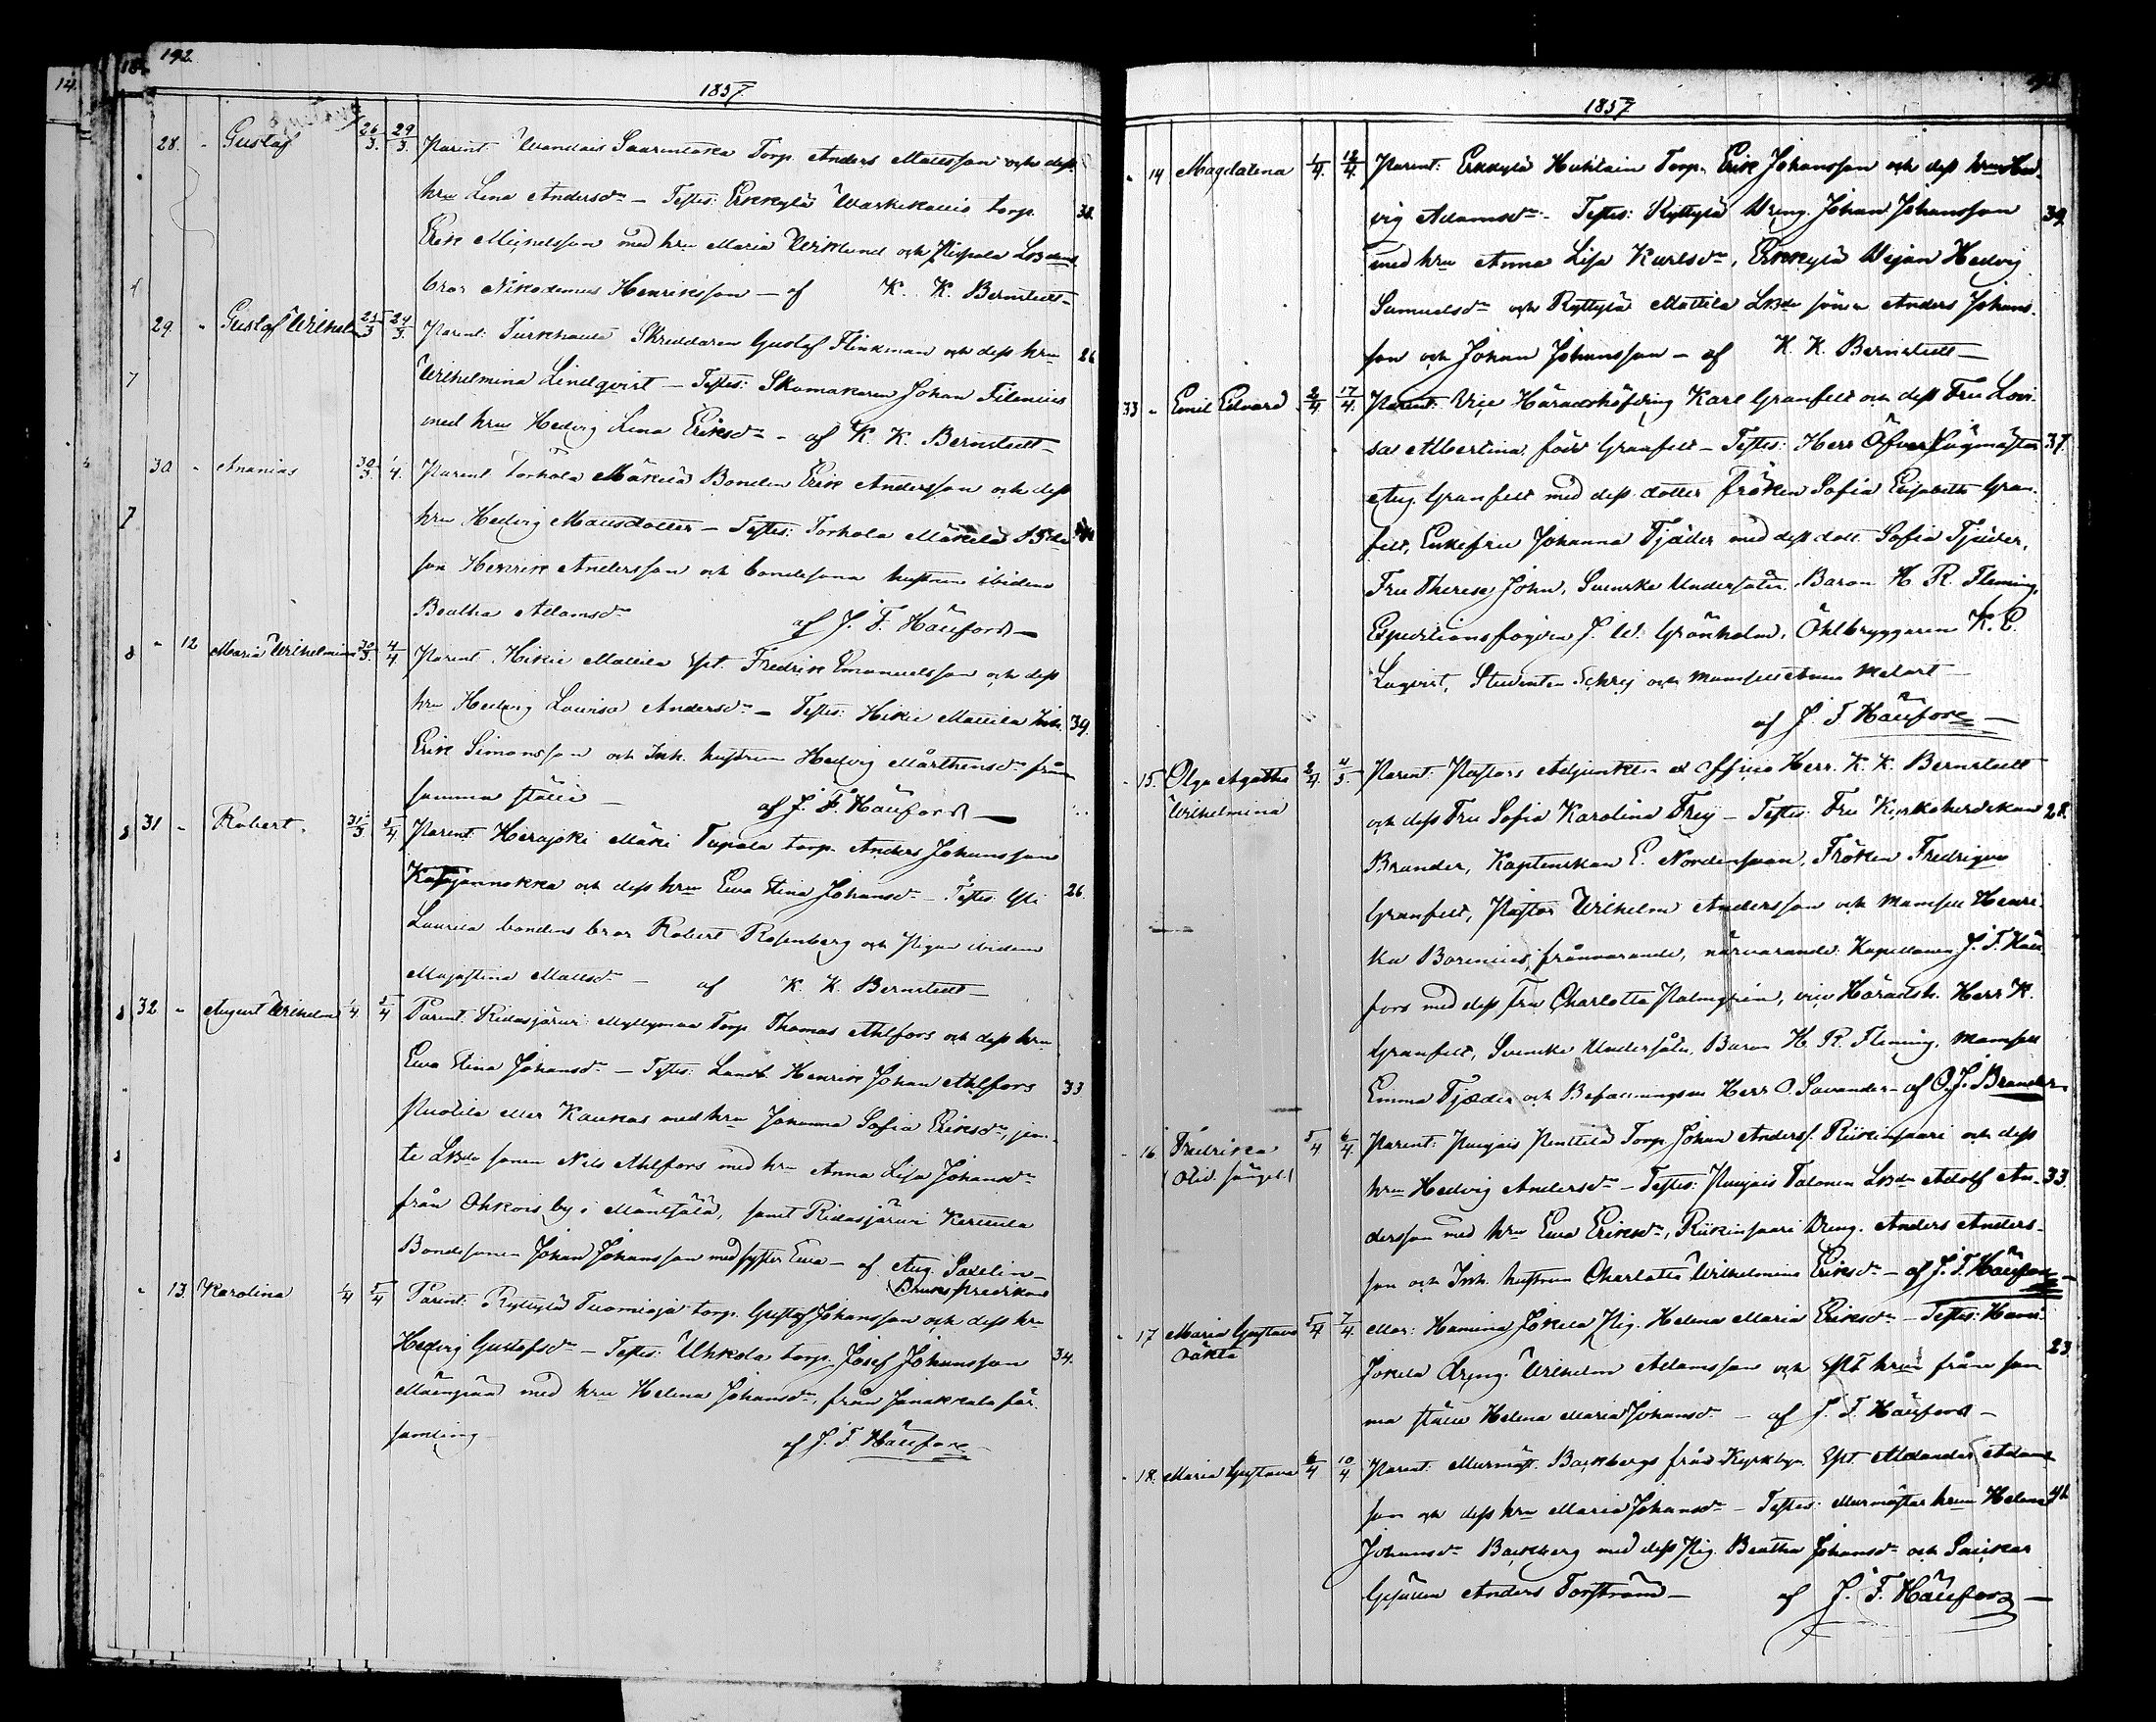 192.
1857.
28. - Gustaf 26/3. 29/3. Parent: Wandais Saarentaka Torp. Anders Mattsson och dess
hru Lena Andersdr - Testes: Erkkylä Warkekallio torp. 38.
Erik Michelsson med hru Maria Wiklund och Pispala LBdens
bror Nikodemus Henriksson - af K. K. Bernstedt -
29. - Gustaf Wilhelm 25/3 29/3. Parent: Turkhauta Skreddaren Gustaf Flinkman och dess hru 26
Wilhelmina Lindqvist - Testes: Skomakaren Johan Filenius
med hru Hedvig Lena Eriksdr - af K. K. Bernstedt -
30 - Ananias 30/3. 1/4. Parent Torhola Mäkilä Bonden Erik Andersson och dess
hru Hedvig Mattsdotter - Testes: Torhola Mäkilä
son Henrik Andersson och bondesona hustrun ibidem
Beatha Adamsdr af J. F. Hällfors -
- 12 Maria Wilhelmina 30/3. 4/4 Parent. Hikiä Mattila Fredrik Emanuelsson och dess
hru Hedvig Lovisa Andersdr - Testes: Hikiä Mattila Inh. 39.
Erik Simonsson och Inh. hustrun Hedvig Mårthensdr från
samma ställe - af J. F. Hällfors -
31 - Robert. 31/3 5/4 Parent: Herajoki Mäki Tupala torp. Anders Johansson
Katajannokka och dess hru Eva Stina Johansdr - Testes: 26.
Laurila bondens bror Robert Rosenberg och Pigan ibidem
Majastina Mattsdr - af K. K. Bernstedt -
32 - August Wilhelm 1/4. 5/4 Parent. Ridasjärvi Myllymaa Torp Thomas Ahlfors och dess hru
Eva Stina Johansdr - Testes: Landb. Henrik Johan Ahlfors 33
eller Kaukas med hru Johanna Sofia Eriksdr, jem-
te LBde sonen Nils Ahlfors med hru Anna Lisa Johansdr
från Ohkois by i Mäntsälä, samt Ridasjärvi Kerttula
Bondesonen Johan Johansson med syster Eva - af Aug. Saxelin -
Brukspredikant
- 13. Karolina 1/4 5/4 Parent: Ryttylä Tuomioja torp. Gustaf Johansson och dess hru
Hedvig Gustafsdr - Testes: Uhkola torp. Josef Johansson 34.
Mäenpää med hru Helena Johansdr, från Janakkala för-
samling - af J. F. Hällfors -
1857
- 14 Magdalena 1/4. 12/4. Parent: Erkkylä Huhtain Torp. Erik Johansson och dess hru Hed-
vig Adamsdr - Testes: Ryttylä Dreng. Johan Johansson 39.
med hru Anna Lisa Karlsdr, Erkkylä Pigan Hedvig
Samuelsdr och Ryttylä Mattila LBde sönen Anders Johans-
son och Johan Johansson - af K. K. Bernstedt -
33 - Emil Edvard 2/4 17/4. Parent: Vice Häradshöfding Karl Granfelt och dess Fru Lovi-
sa Albertina, född Granfelt - Testes: Herr Öfverjägmästar 37.
Aug. Granfelt med dess dotter fröken Sofia Elisabeth Gran-
felt, Enkefru Johanna Tjäder med dess dott. Sofia Tjäder,
Fru Therese John, Svenska Undersåten Baron H. R. Fleming,
Expeditionsfogden J. W. Grönholm, Öhlbryggaren K. E.
Studenten och mamsell Anna
af J. F. Hällfors -
- 15. Olga Agatha Wilhelmina 2/4. 4/5. Parent: Pastors Adjunkten ex officio Herr. K. K. Bernstedt
och dess Fru Sofia Karolina Frey - Testes: Fru Kyrkoherdskan 28.
Brander, Kaptenskan E. Nordenswan, Fröken Fredrique
Granfelt, Pastor Wilhelm Andersson och Mamsell Henri-
ka Borenius, frånvarande, närvarande: Kapellanen J. F. Häll-
fors med dess fru Charlotta Palmgren, vice Häradsh. Herr K.
Granfelt, Svenska Undersåten Baron H. R. Fleming, Mamsell
Emma Tjæder och Befallningsm Herr O. Savander - af O. J. Brander -
- 16 Fredrika 5/4 6/4. Parent: Punjais Penttilä Torp. Johan Anderss. Riikinsaari och dess
hru Hedvig Andersdr - Testes: Punjais Talonen LBde Adolf An- 33.
dersson med hru Eva Eriksdr, Riikinsaari Dreng. Anders Anders-
son och Inh. hustrun Charlotta Wilhelmina Eriksdr - af J. F. Hällfors -
- 17 Maria Gustava oäkta 5/4 7/4. Mor: Hamina Jokela Pig. Helena Maria Eriksdr - Testes: Ham:
Jokela dreng. Wilhelm Adamsson och hru från sam- 23.
ma ställe Helena Maria Johansdr - af J. F. Hällfors -
- 18. Maria Gustava 6/4 10/4 Parent: Murmäst. Backbergs från Kyrkbyn Alexander Adams-
son och dess hru Maria Johansdr - Testes: Murmästar hrun Helena 41.
Johansdr Backberg med dess Pig. Beatha Johansdr och Snickar
Gesällen Anders Torström - af J. F. Hällfors -